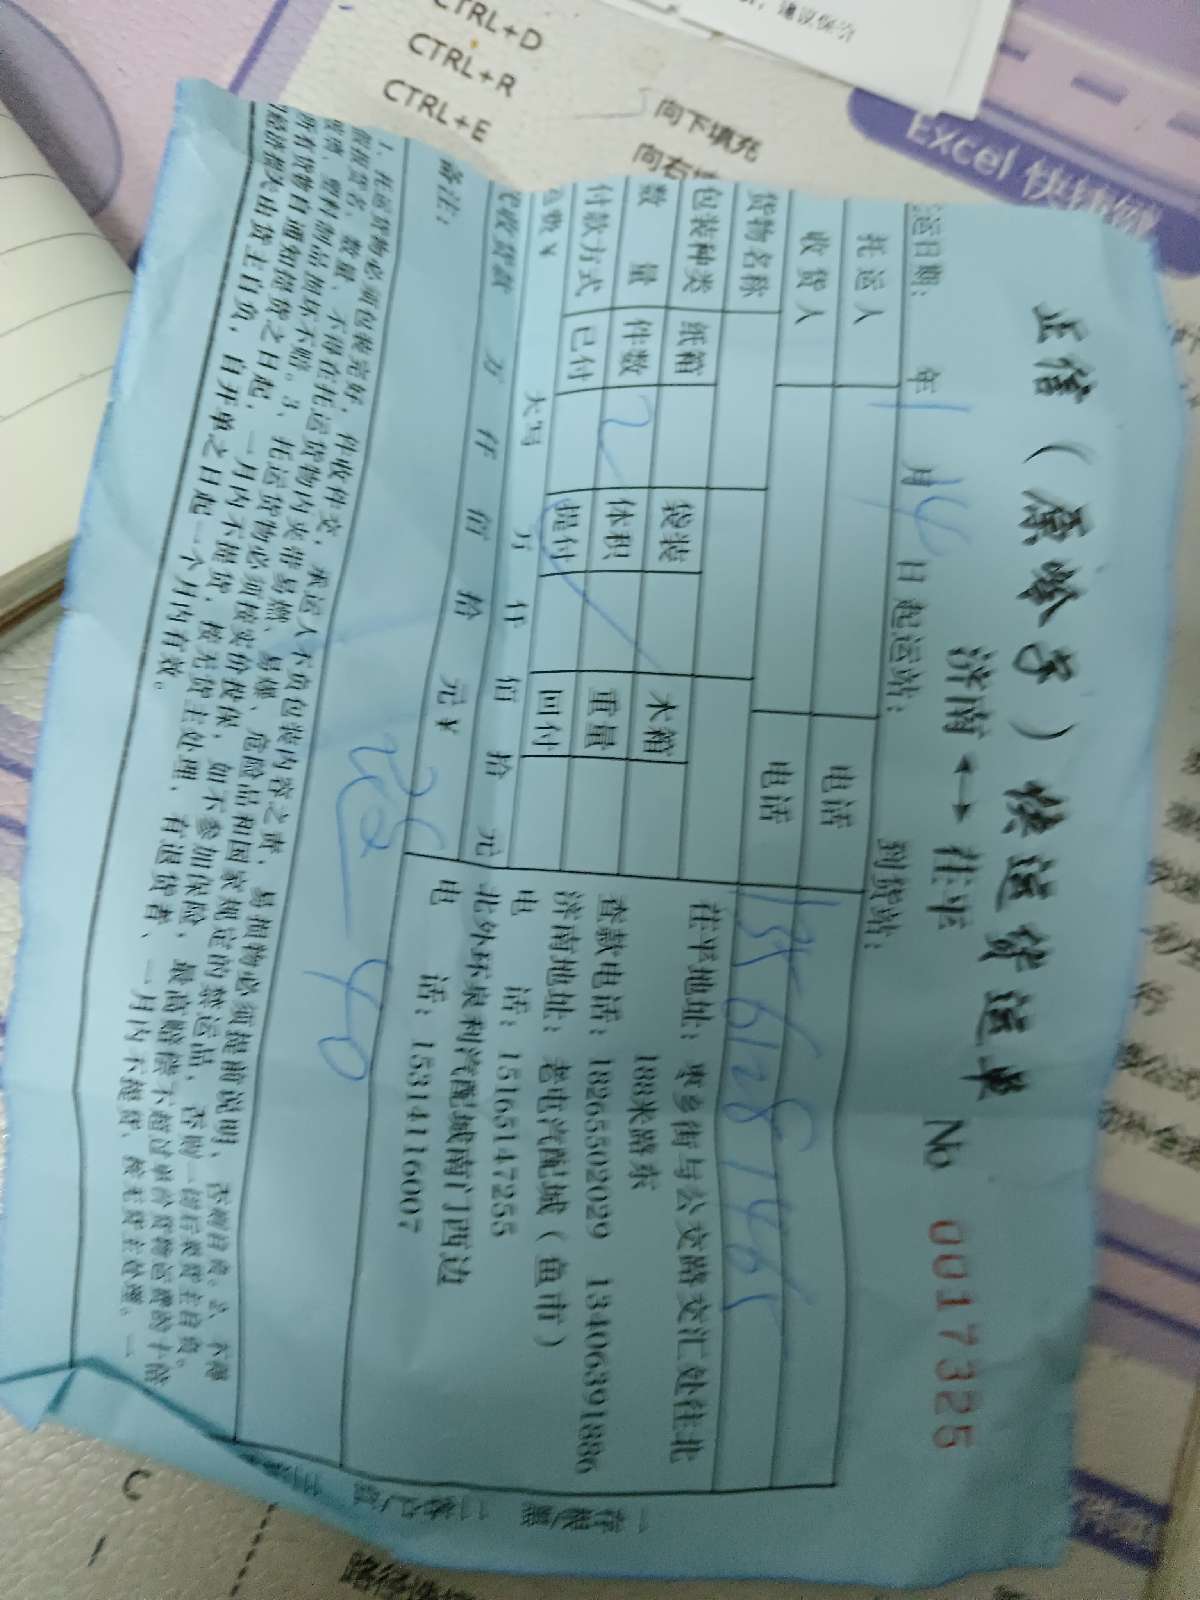 正信（原哈子）快运货运单 No 0017325
济南 ↔ 茌平
运日期： 年 1 月 14 日 起运站： 到货站：
托运人 电话
收货人 电话 15561281465
货物名称
包装种类 纸箱 袋装 木箱
数量 件数 2 体积 重量
付款方式 已付 提付 回付
运费¥ 大写 万 仟 佰 拾 元
代收货款 万 仟 佰 拾 元¥
备注： 40
茌平地址：枣乡街与公交路交汇处往北
188米路东
查款电话：18265502029 13406391886
济南地址：老屯汽配城（鱼市）
电话：15165147255
北外环泉利汽配城南门西边
电话：15314116007
1、托运货物必须包装完好，件收件交，承运人不负包装内容之责，易损物必须提前说明，否则自负。2、不得
假报货名、数量，不得在托运货物内夹带易燃、易爆、危险品和国家规定的禁运品，否则一切后果货主自负。
玻璃、塑料制品损坏不赔。3、托运货物必须按实价投保，如不参加保险，最高赔偿不超过单价货物运费的十倍
所有货物自通知提货之日起，一月内不提货，按无货主处理，有退货者，一月内不提货，按无货主处理。一
切经济损失由货主自负，自开单之日起一个月内有效。
一存根
二客户
CTRL+D 向下填充
CTRL+R 向右
CTRL+E
Excel 快捷键
建议保价
C